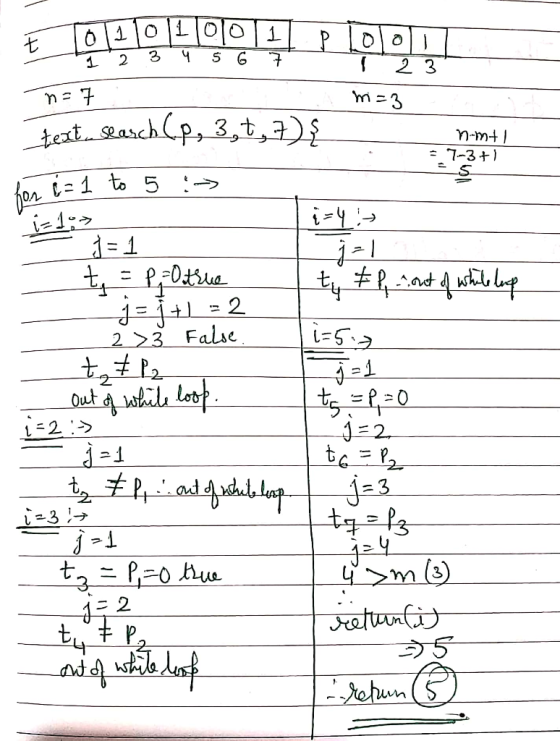 t 0 1 0 1 0 0 1 P 0 0 1
1 2 3 4 5 6 7 1 2 3
n = 7 m = 3
text_search(p, 3, t, 7) {
n-m+1
= 7-3+1
= 5
for i=1 to 5 :→
i=1:→
j=1
t₁ = P₁=0 true
j = j+1 = 2
2 > 3 False.
t₂ ≠ P₂
out of while loop.
i=2 :→
j=1
t₂ ≠ P₁ ∴ out of while loop.
i=3 :→
j=1
t₃ = P₁=0 true
j=2
t₄ ≠ P₂
out of while loop
i=4 :→
j=1
t₄ ≠ P₁ ∴ out of while loop
i=5 :→
j=1
t₅ = P₁=0
j=2
t₆ = P₂
j=3
t₇ = P₃
j=4
4 > m (3)
∴
return(i)
⇒ 5
∴ return 5